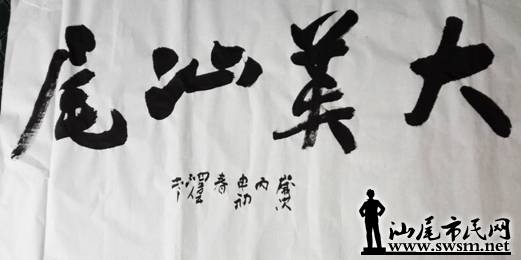 大美汕尾
歲次
丙
申初
春
汕尾市民网
www.swsm.net